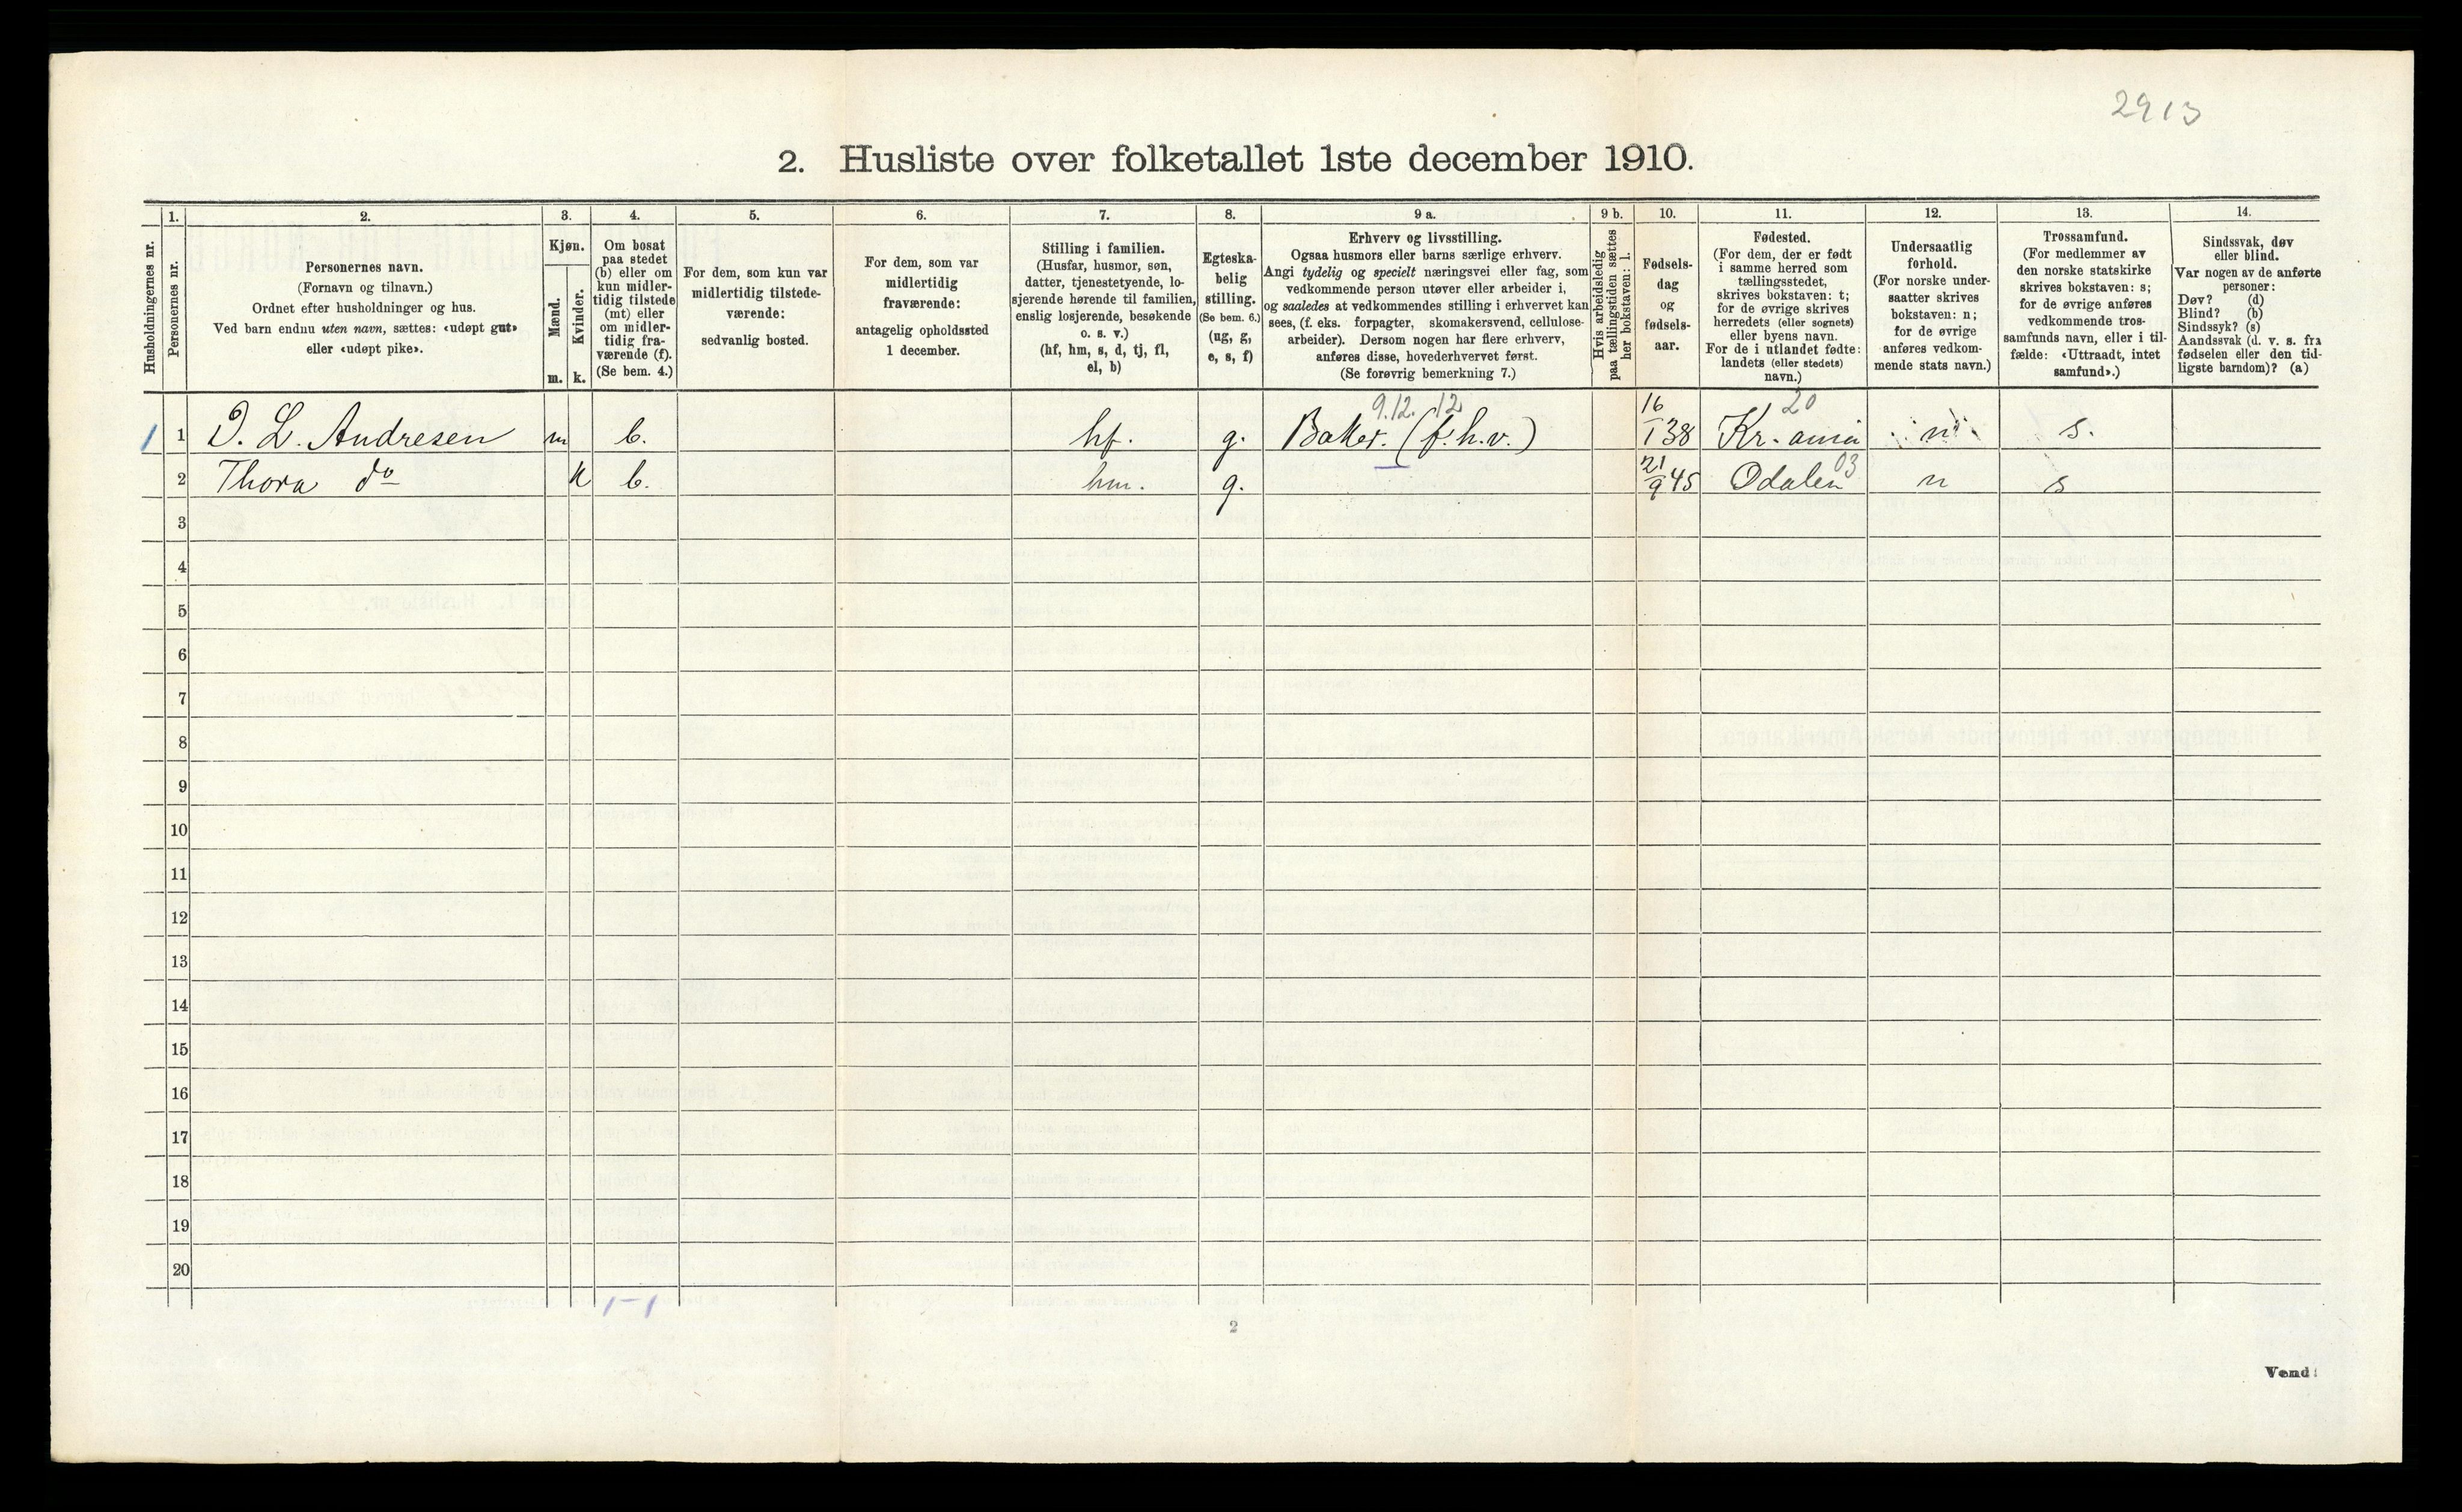 2913
2. Husliste over folketallet 1ste december 1910.
Husholdningernes nr.
1.
Personernes nr.
2.
Personernes navn.
(Fornavn og tilnavn.)
Ordnet efter husholdninger og hus.
Ved barn endnu uten navn, sættes: «udøpt gut»
eller «udøpt pike».
3.
Kjøn.
Mænd.
Kvinder.
m. k.
4.
Om bosat
paa stedet
(b) eller om
kun midler-
tidig tilstede
(mt) eller
om midler-
tidig fra-
værende (f).
(Se bem. 4.)
5.
For dem, som kun var
midlertidig tilstede-
værende:
sedvanlig bosted.
6.
For dem, som var
midlertidig
fraværende:
antagelig opholdssted
1 december.
7.
Stilling i familien.
(Husfar, husmor, søn,
datter, tjenestetyende, lo-
sjerende hørende til familien,
enslig losjerende, besøkende
o. s. v.)
(hf, hm, s, d, tj, fl,
el, b)
8.
Egteska-
belig
stilling.
(Se bem. 6.)
(ug, g,
e, s, f)
9 a.
Erhverv og livsstilling.
Ogsaa husmors eller barns særlige erhverv.
Angi tydelig og specielt næringsvei eller fag, som
vedkommende person utøver eller arbeider i,
og saaledes at vedkommendes stilling i erhvervet kan
sees, (f. eks. forpagter, skomakersvend, cellulose-
arbeider). Dersom nogen har flere erhverv,
anføres disse, hovederhvervet først.
(Se forøvrig bemerkning 7.)
9 b.
Hvis arbeidsledig
paa tællingstiden sættes
her bokstaven: l.
10.
Fødsels-
dag
og
fødsels-
aar.
11.
Fødested.
(For dem, der er født
i samme herred som
tællingsstedet,
skrives bokstaven: t;
for de øvrige skrives
herredets (eller sognets)
eller byens navn.
For de i utlandet fødte:
landets (eller stedets)
navn.)
12.
Undersaatlig
forhold.
(For norske under-
saatter skrives
bokstaven: n;
for de øvrige
anføres vedkom-
mende stats navn.)
13.
Trossamfund.
(For medlemmer av
den norske statskirke
skrives bokstaven: s;
for de øvrige anføres
vedkommende tros-
samfunds navn, eller i til-
fælde: «Uttraadt, intet
samfund».)
14.
Sindssvak, døv
eller blind.
Var nogen av de anførte
personer:
Døv? (d)
Blind? (b)
Sindssyk? (s)
Aandssvak (d. v. s. fra
fødselen eller den tid-
ligste barndom)? (a)
9.12. 12 20
1 1 L. Andresen m b. hf. g. Baker. (f.h.v.) 16/1 38 Kr.ania n s.
03
2 Thora do k b. hm. g. 21/9 45 Odalen n s
3
4
5
6
7
8
9
10
11
12
13
14
15
16
17
18
19
20
1-1
2
Vend!